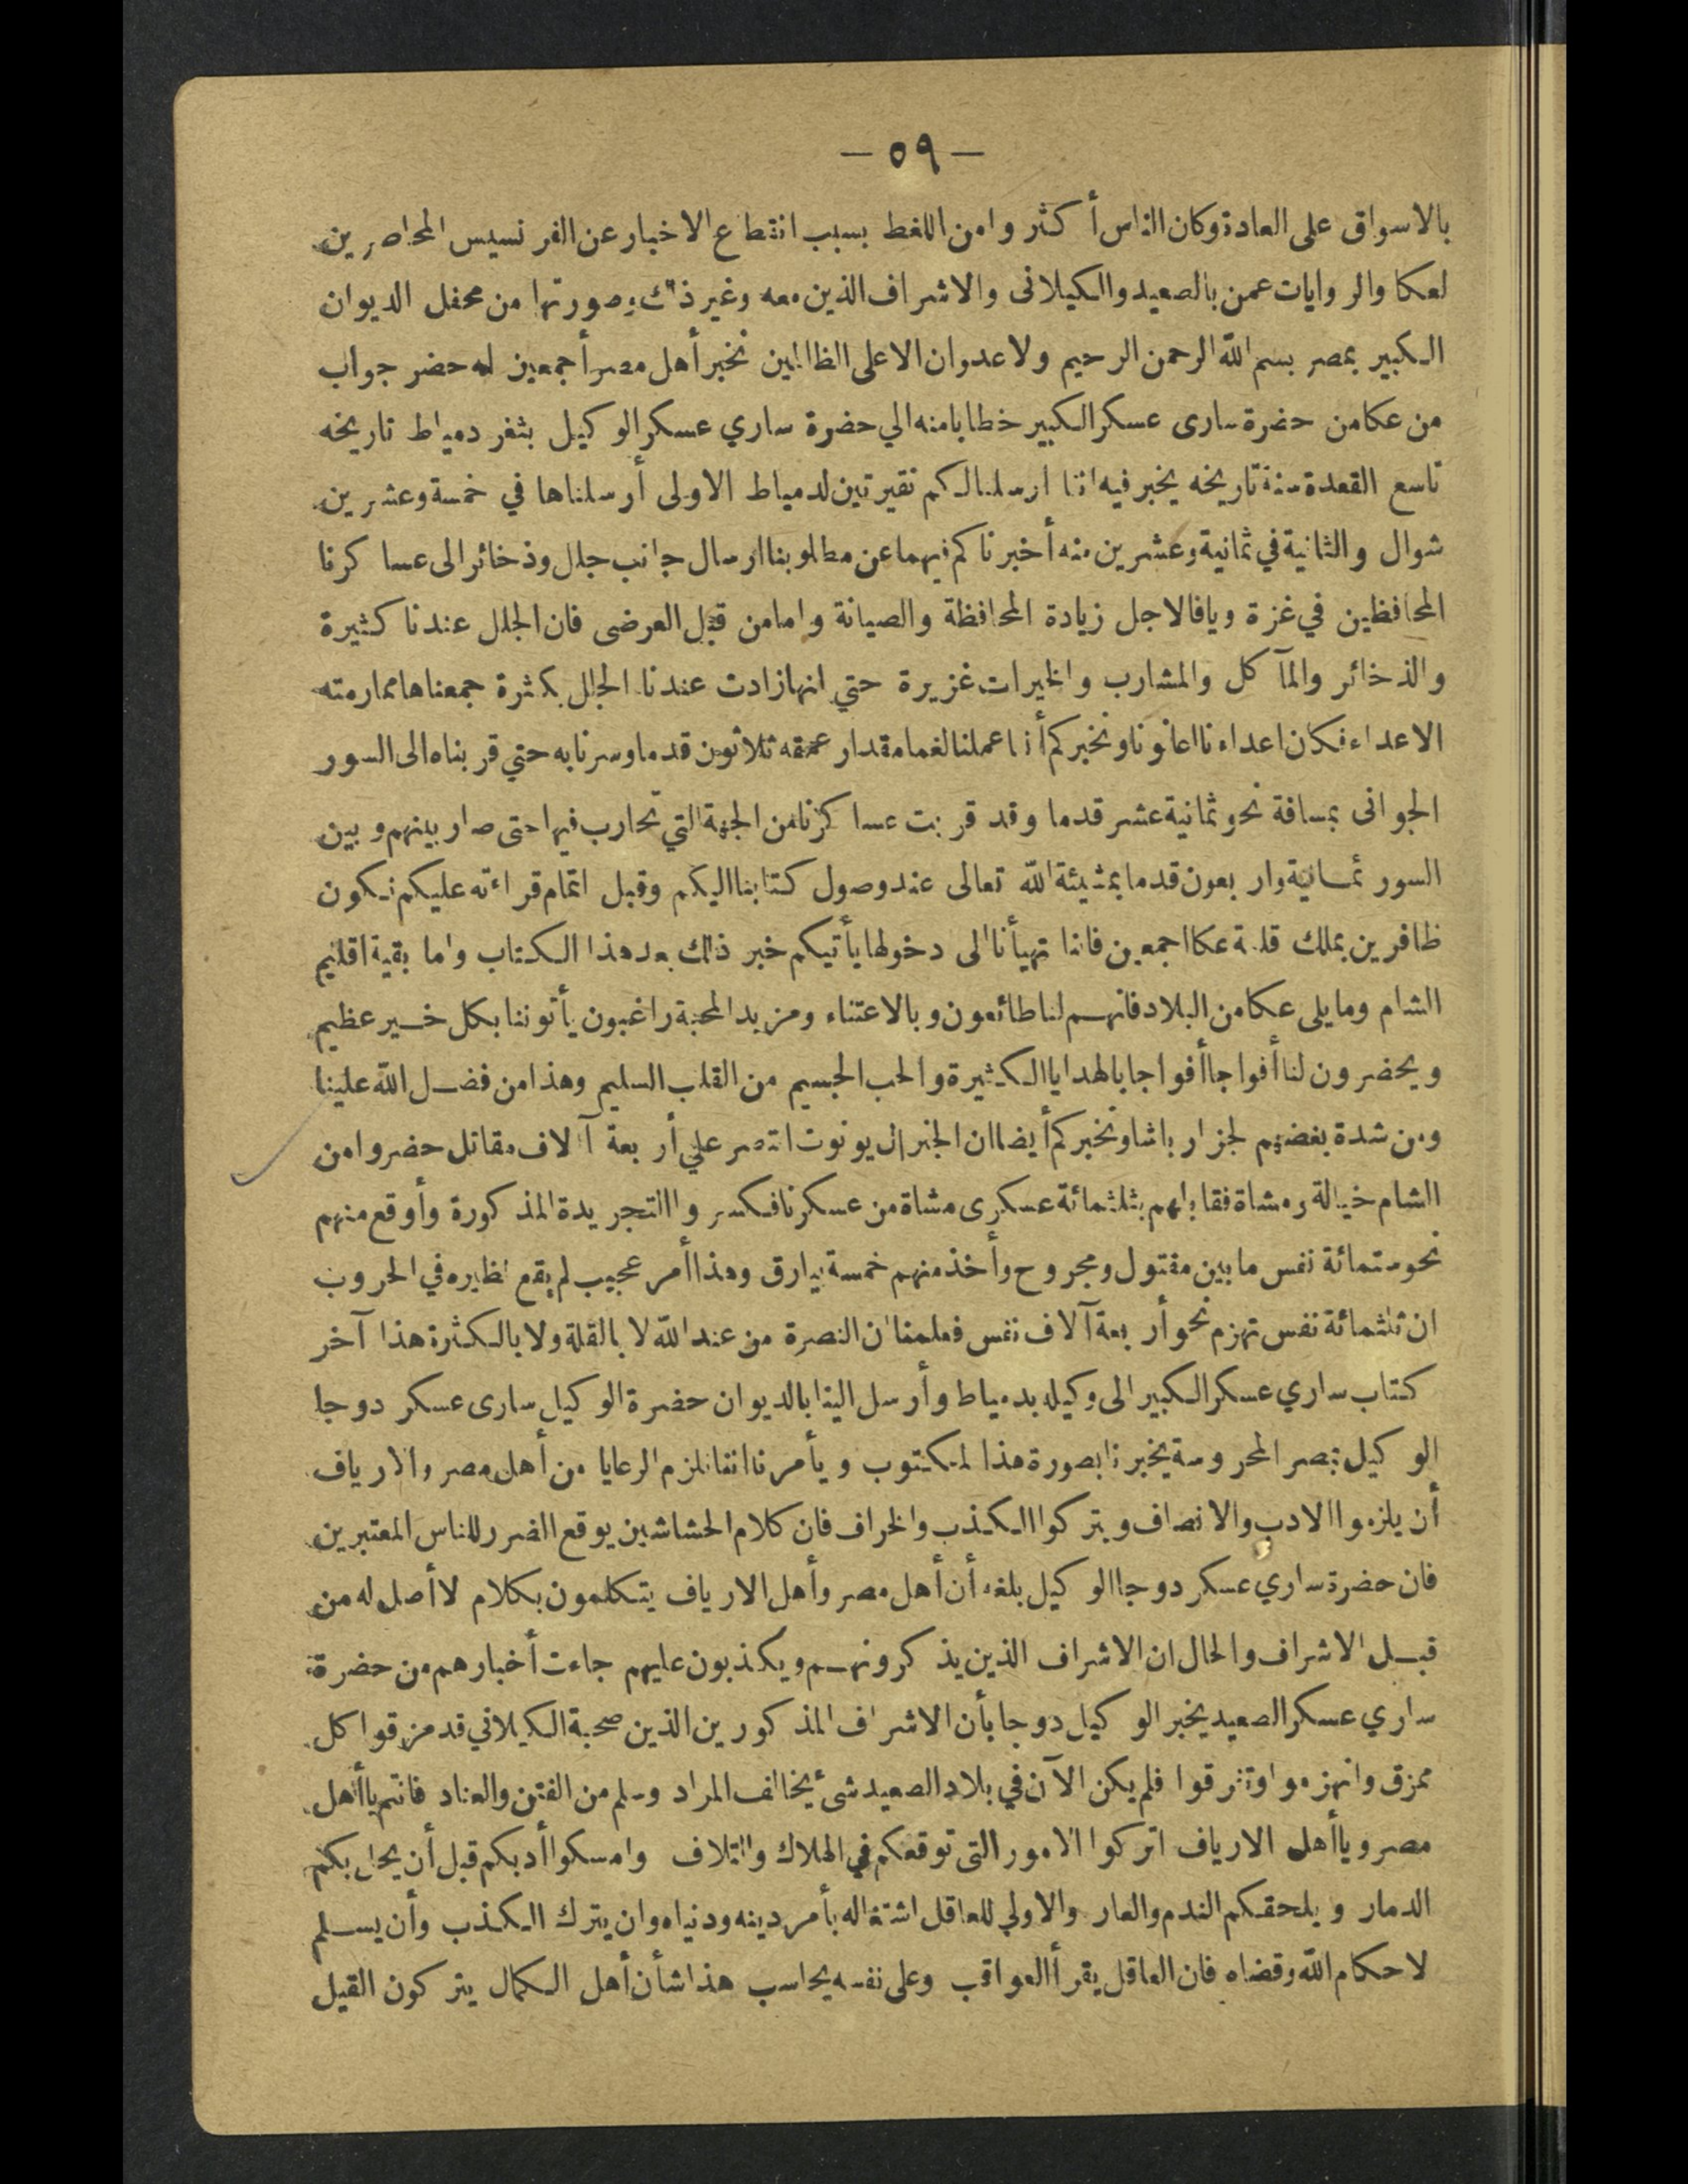 — ٥٩ —
بالاسواق على العادة وكان الناس أكثروا من اللغط بسبب انقطاع الاخبار عن الفرنسيس المحاصرين
لعكا والروايات عمن بالصعيد والكيلانى والاشراف الذين معه وغير ذلك وصورتها من محفل الديوان
الكبير بمصر بسم الله الرحمن الرحيم ولا عدوان الا على الظالمين نخبر أهل مصر أجمعين انه حضر جواب
من عكا من حضرة سارى عسكر الكبير خطابا منه الي حضرة ساري عسكر الوكيل بثغر دمياط تاريخه
تاسع القعدة سنة تاريخه يخبر فيه اننا ارسلنا لكم نقيرتين لدمياط الاولى أرسلناها في خمسة وعشرين
شوال والثانية في ثمانية وعشرين منه أخبرناكم فيهما عن مطلوبنا ارسال جانب جلل وذخائر الى عساكرنا
المحافظين في غزة ويافا لاجل زيادة المحافظة والصيانة واما من قبل العرضى فان الجلل عندنا كثيرة
والذخائر والمآكل والمشارب والخيرات غزيرة حتي انها زادت عندنا الجلل بكثرة جمعناها مما رمته
الاعداء فكان اعداءنا اعانونا ونخبركم أننا عملنا لغما مقدار عمقه ثلاثون قدما وسرنا به حتي قربناه الى السور
الجوانى بمسافة نحو ثمانية عشر قدما وقد قربت عساكرنا من الجهة التي تحارب فيها حتى صار بينهم وبين
السور ثمانية واربعون قدما بمشيئة الله تعالى عند وصول كتابنا اليكم وقبل اتمام قراءته عليكم نكون
ظافرين بملك قلعة عكا اجمعين فاننا تهيأنا الى دخولها يأتيكم خبر ذلك بعد هذا الكتاب واما بقية اقليم
الشام وما يلى عكا من البلاد فانهم لنا طائعون وبالاعتناء ومزيد المحبة راغبون يأتوننا بكل خير عظيم
ويحضرون لنا أفواجا أفواجا بالهدايا الكثيرة والحب الجسيم من القلب السليم وهذا من فضل الله علينا
ومن شدة بغضهم لجزار باشا ونخبركم أيضا ان الجنرال يونوت انتصر علي أربعة آلاف مقاتل حضروا من
الشام خيالة ومشاة فقابلهم بثلثمائة عسكرى مشاة من عسكرنا فكسروا التجريدة المذكورة وأوقع منهم
نحو ستمائة نفس ما بين مقتول ومجروح وأخذ منهم خمسة بيارق وهذا أمر عجيب لم يقع نظيره في الحروب
ان ثلثمائة نفس تهزم نحو أربعة آلاف نفس فعلمنا ان النصرة من عند الله لا بالقلة ولا بالكثرة هذا آخر
كتاب ساري عسكر الكبير الى وكيله بدمياط وأرسل الينا بالديوان حضرة الوكيل سارى عسكر دوجا
الوكيل بمصر المحروسة يخبرنا بصورة هذا المكتوب ويأمرنا اننا نلزم الرعايا من أهل مصر والارياف
أن يلزموا الادب والانصاف ويتركوا الكذب والخراف فان كلام الحشاشين يوقع الضرر للناس المعتبرين
فان حضرة ساري عسكر دوجا الوكيل بلغه أن أهل مصر وأهل الارياف يتكلمون بكلام لا أصل له من
قبل الاشراف والحال ان الاشراف الذين يذكرونهم ويكذبون عليهم جاءت أخبارهم من حضرة
ساري عسكر الصعيد يخبر الوكيل دوجا بأن الاشراف المذكورين الذين صحبة الكيلاني قد مزقوا كل
ممزق وانهزموا وتفرقوا فلم يكن الآن في بلاد الصعيد شئ يخالف المراد وسلم من الفتن والعناد فانتم يا أهل
مصر ويا أهل الارياف اتركوا الامور التى توقعكم في الهلاك والتلاف وامسكوا أدبكم قبل أن يحل بكم
الدمار ويلحقكم الندم والعار والاولي للعاقل اشتغاله بأمر دينه ودنياه وان يترك الكذب وأن يسلم
لاحكام الله وقضاه فان العاقل يقرأ العواقب وعلى نفسه يحاسب هذا شأن أهل الكمال يتركون القيل